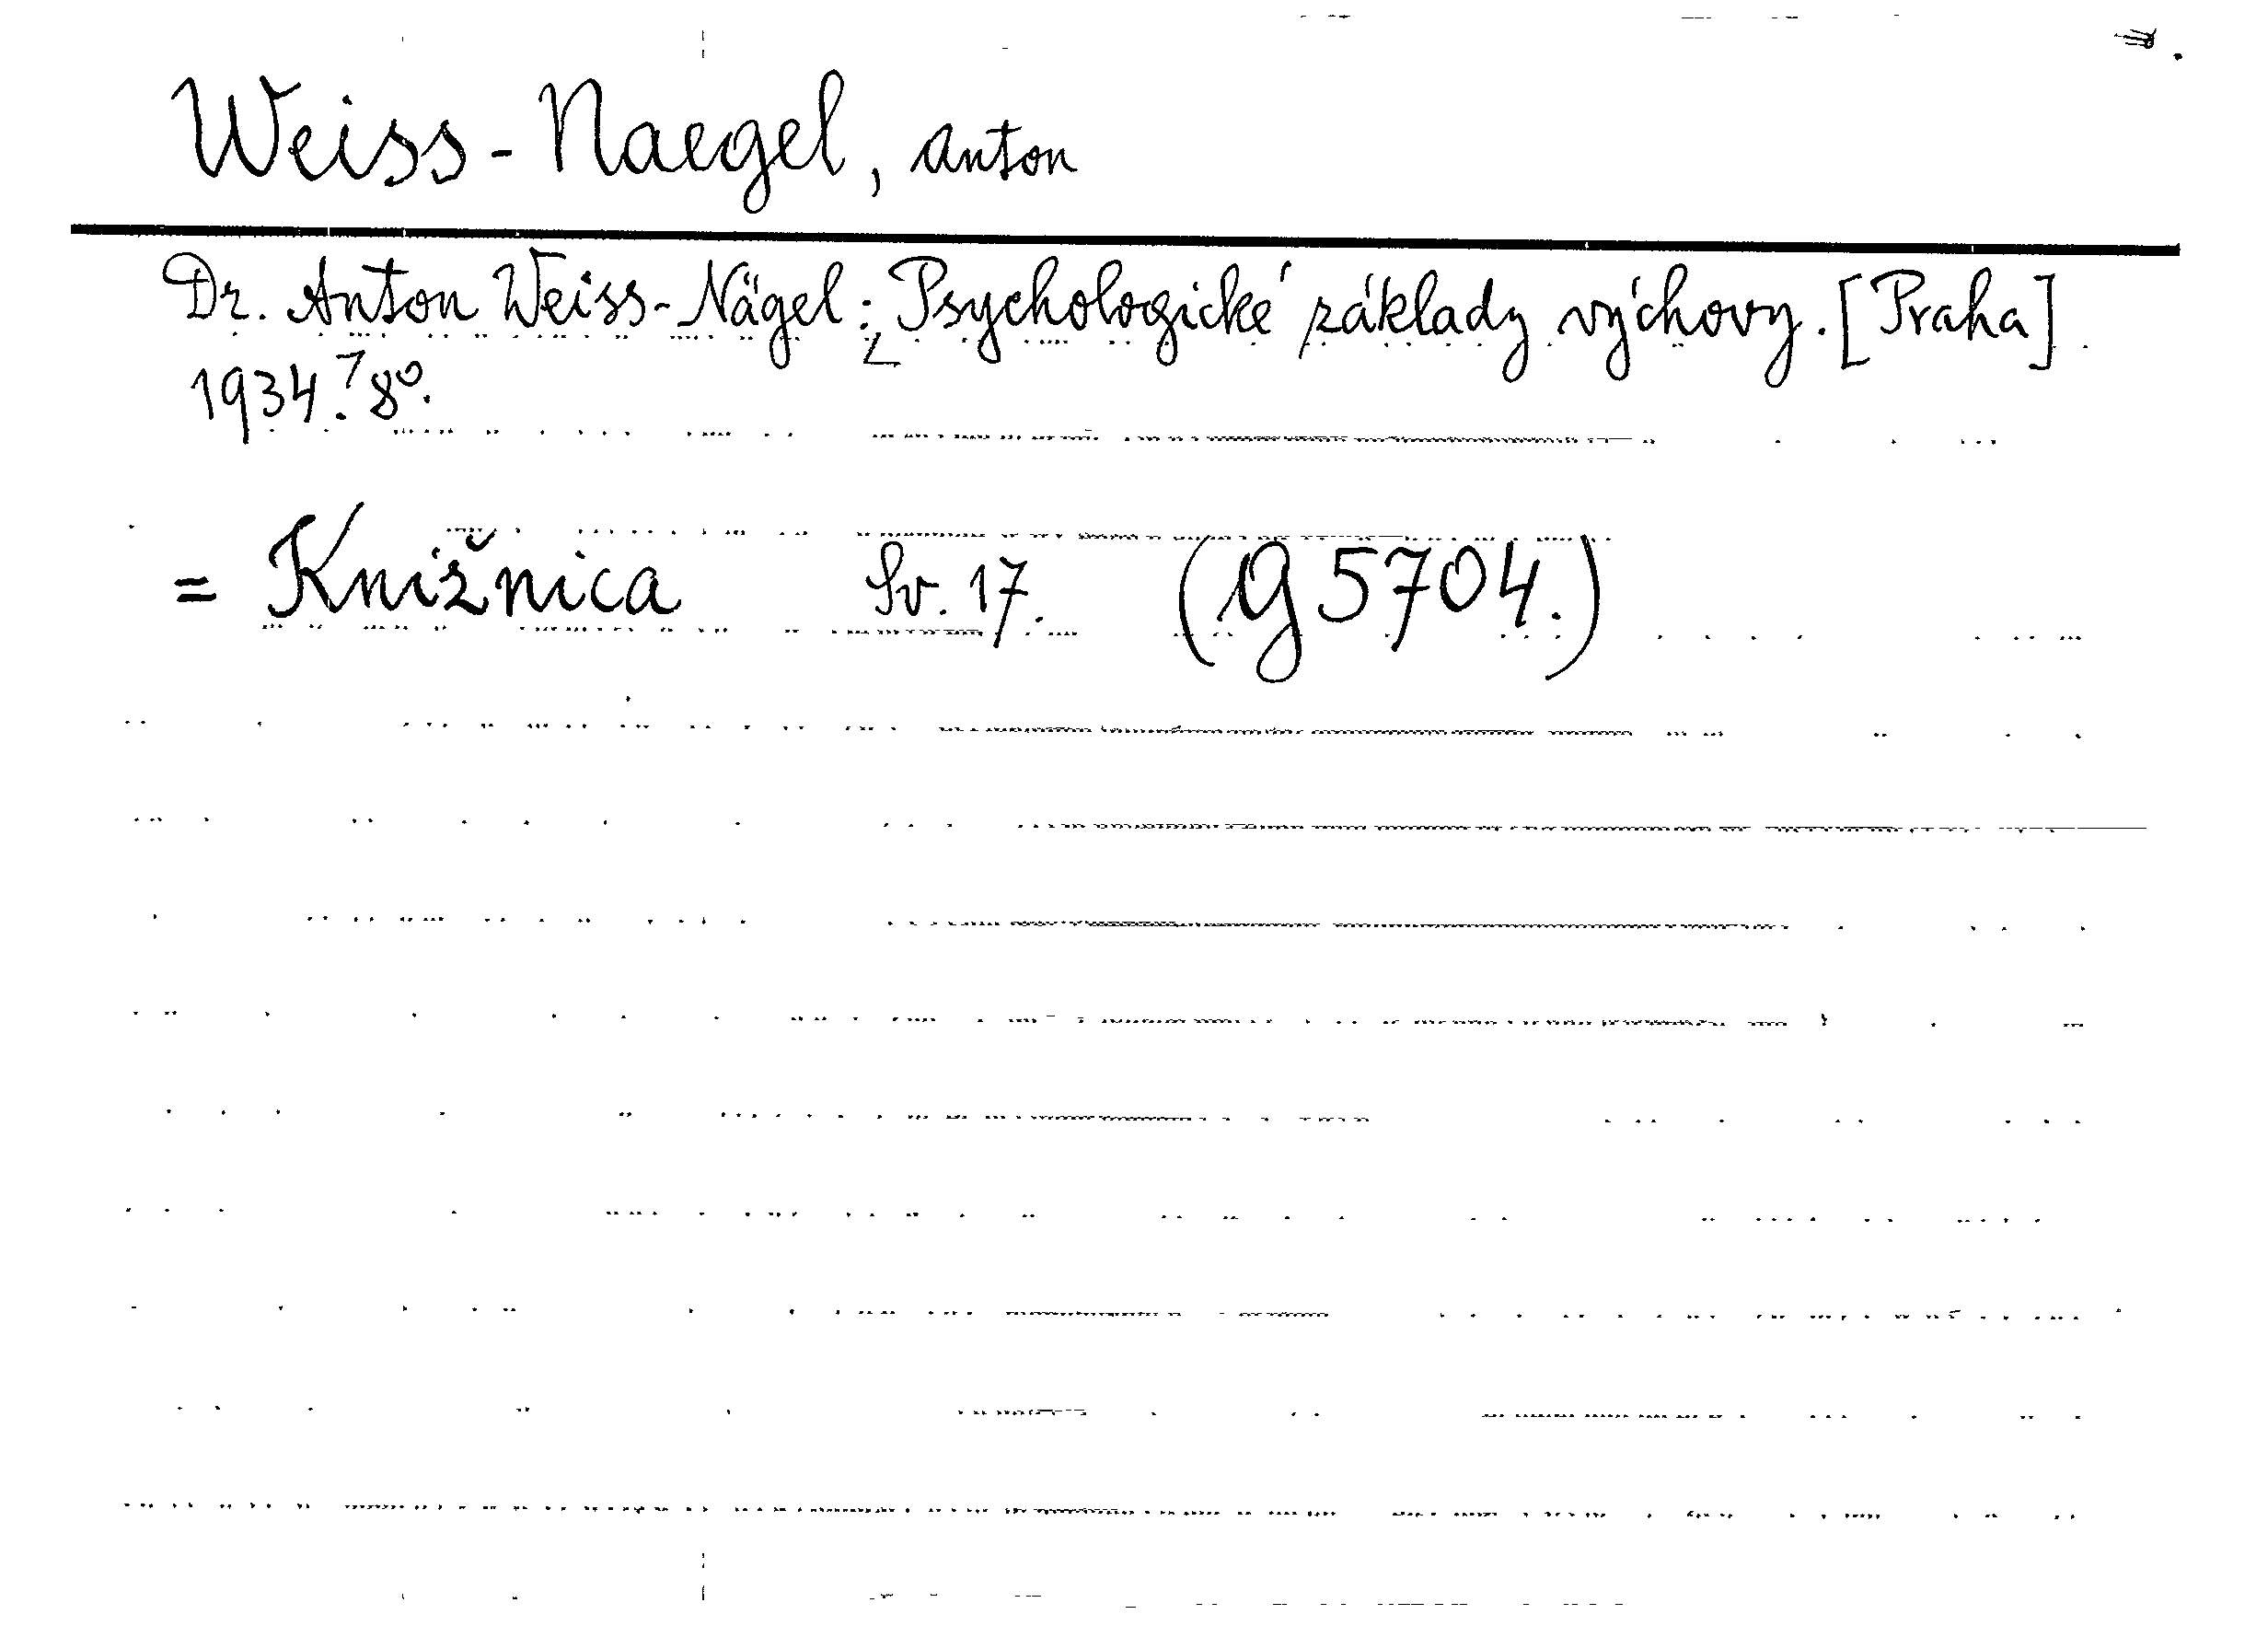 Weiss-Naegel, Anton
Dr. Anton Weiss-Nägel: Psychologické základy výchovy. [Praha]
1934. 8°.
= Knižnica Sv. 17. (G 5704.)